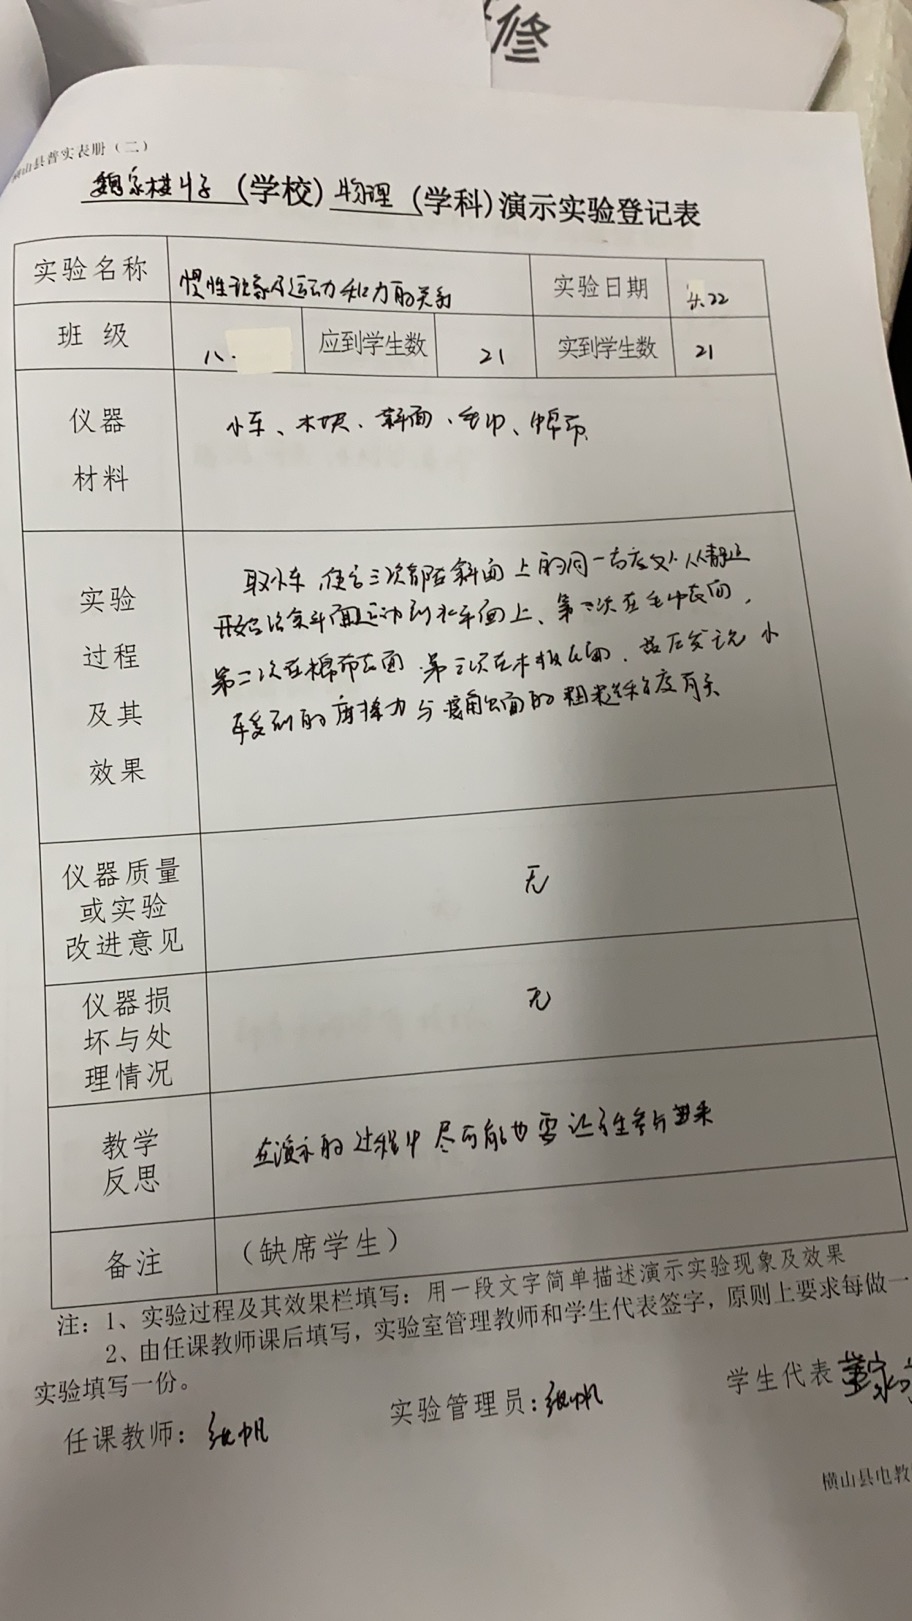 修
横山县普实表册（二）
魏家楼中学（学校）物理（学科）演示实验登记表
实验名称 惯性现象及运动和力的关系 实验日期 4.22
班 级 八. 应到学生数 21 实到学生数 21
仪器
材料
小车、木块、斜面、毛巾、棉布
实验
过程
及其
效果
取小车,使它三次都在斜面上的同一高度处,从静止
开始沿斜面运动到水平面上、第一次在毛巾表面,
第二次在棉布表面.第三次在木板表面.最后发现小
车受到的摩擦力与接触面的粗糙程度有关
仪器质量
或实验
改进意见
无
仪器损
坏与处
理情况
无
教学
反思
在演示的过程中尽可能也要让学生参与进来
备注 （缺席学生）
注：1、实验过程及其效果栏填写：用一段文字简单描述演示实验现象及效果
2、由任课教师课后填写，实验室管理教师和学生代表签字，原则上要求每做一
实验填写一份。
任课教师： 实验管理员： 学生代表
横山县电教